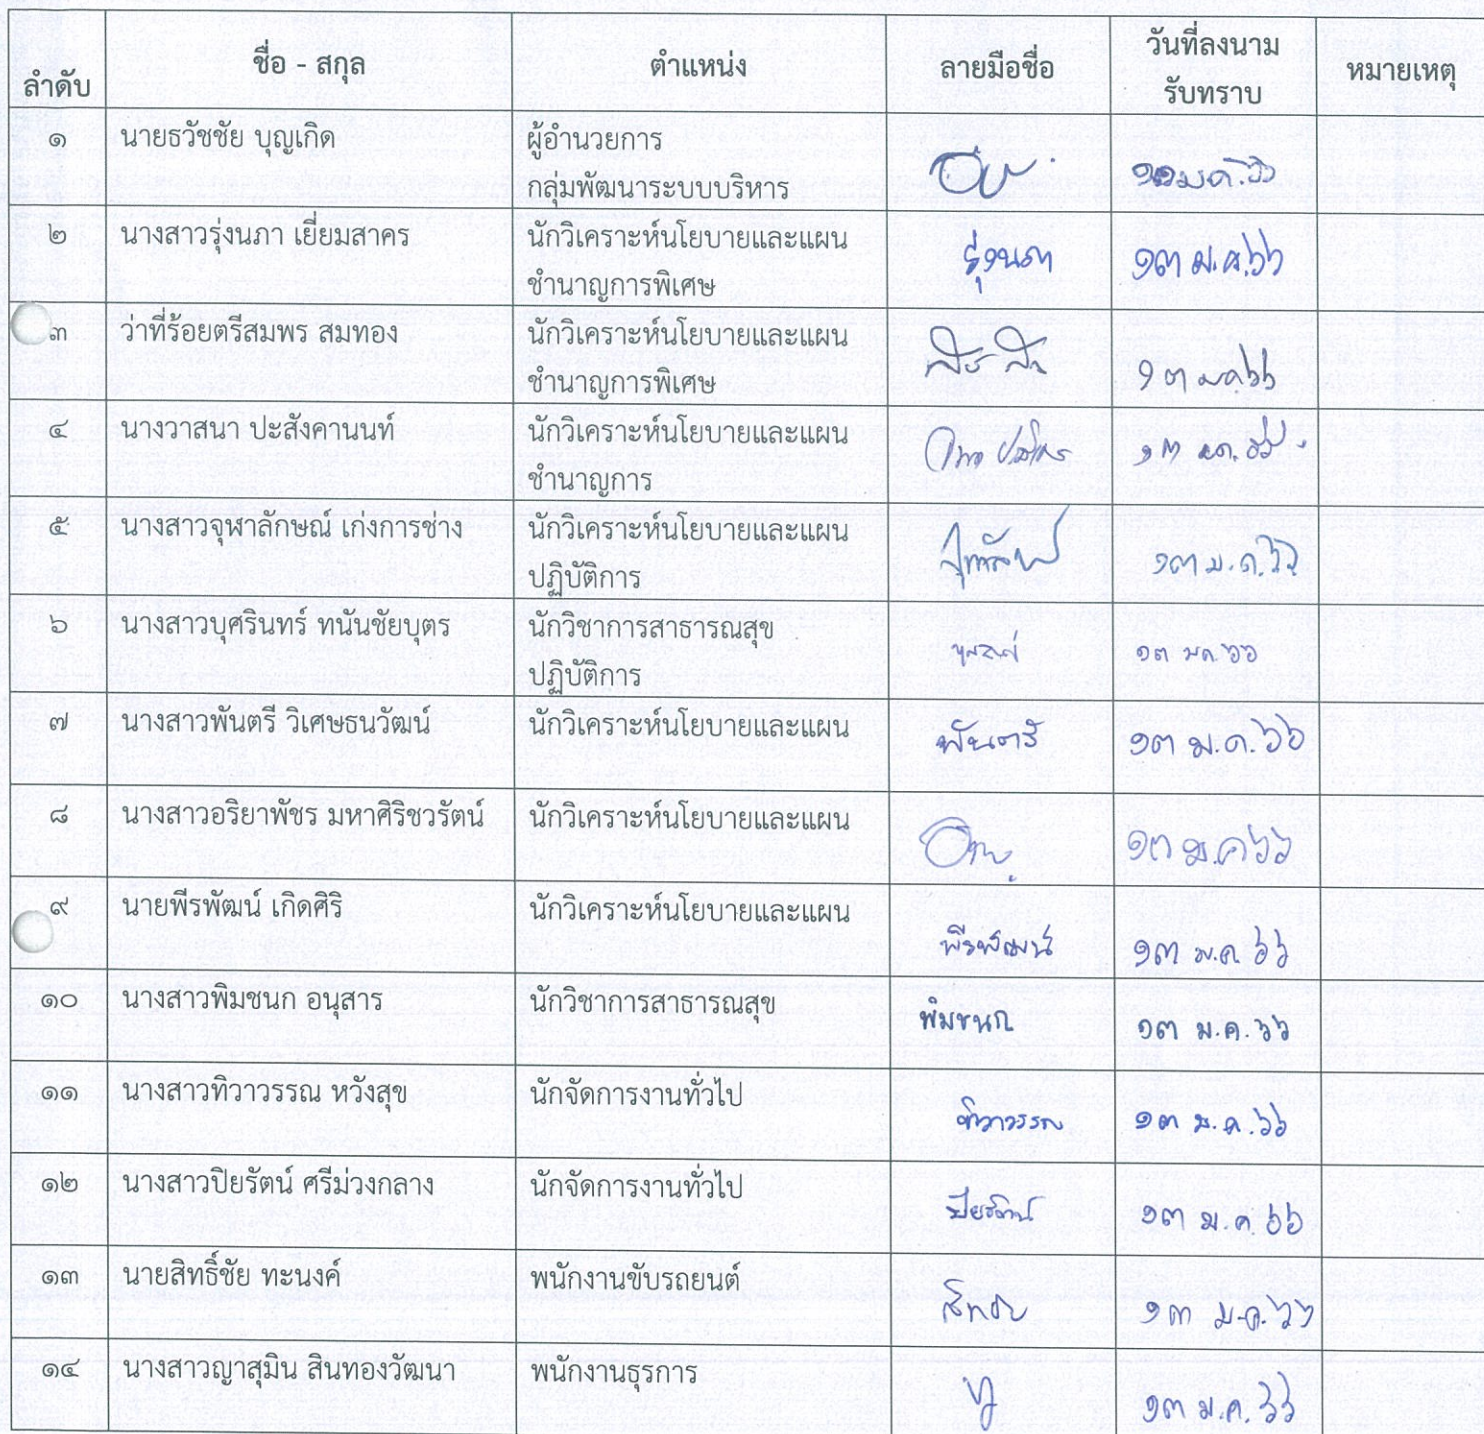 ลำดับ ชื่อ - สกุล ตำแหน่ง ลายมือชื่อ วันที่ลงนาม หมายเหตุ
รับทราบ
๑ นายธวัชชัย บุญเกิด ผู้อำนวยการ
กลุ่มพัฒนาระบบบริหาร ม.ค. ๖๖
๒ นางสาวรุ่งนภา เยี่ยมสาคร นักวิเคราะห์นโยบายและแผน รุ่งนภา ๑๓ ม.ค. ๖๖
ชำนาญการพิเศษ
๓ ว่าที่ร้อยตรีสมพร สมทอง นักวิเคราะห์นโยบายและแผน
ชำนาญการพิเศษ ๑๓ มค ๖๖
๔ นางวาสนา ปะสังคานนท์ นักวิเคราะห์นโยบายและแผน
ชำนาญการ ๑๓ มค. ๖๖
๕ นางสาวจุฬาลักษณ์ เก่งการช่าง นักวิเคราะห์นโยบายและแผน
ปฏิบัติการ ๑๓ ม.ค. ๖๖
๖ นางสาวบุศรินทร์ ทนันชัยบุตร นักวิชาการสาธารณสุข
ปฏิบัติการ ๑๓ มค. ๖๖
๗ นางสาวพันตรี วิเศษธนวัฒน์ นักวิเคราะห์นโยบายและแผน พันตรี ๑๓ ม.ค. ๖๖
๘ นางสาวอริยาพัชร มหาศิริชวรัตน์ นักวิเคราะห์นโยบายและแผน
๑๓ ม.ค ๖๖
๙ นายพีรพัฒน์ เกิดศิริ นักวิเคราะห์นโยบายและแผน
พีรพัฒน์ ๑๓ ม.ค ๖๖
๑๐ นางสาวพิมชนก อนุสาร นักวิชาการสาธารณสุข พิมชนก ๑๓ ม.ค. ๖๖
๑๑ นางสาวทิวาวรรณ หวังสุข นักจัดการงานทั่วไป
ทิวาวรรณ ๑๓ ม.ค. ๖๖
๑๒ นางสาวปิยรัตน์ ศรีม่วงกลาง นักจัดการงานทั่วไป
ปิยรัตน์ ๑๓ ม.ค ๖๖
๑๓ นายสิทธิ์ชัย ทะนงค์ พนักงานขับรถยนต์
๑๓ ม.ค. ๖๖
๑๔ นางสาวญาสุมิน สินทองวัฒนา พนักงานธุรการ
๑๓ ม.ค. ๖๖